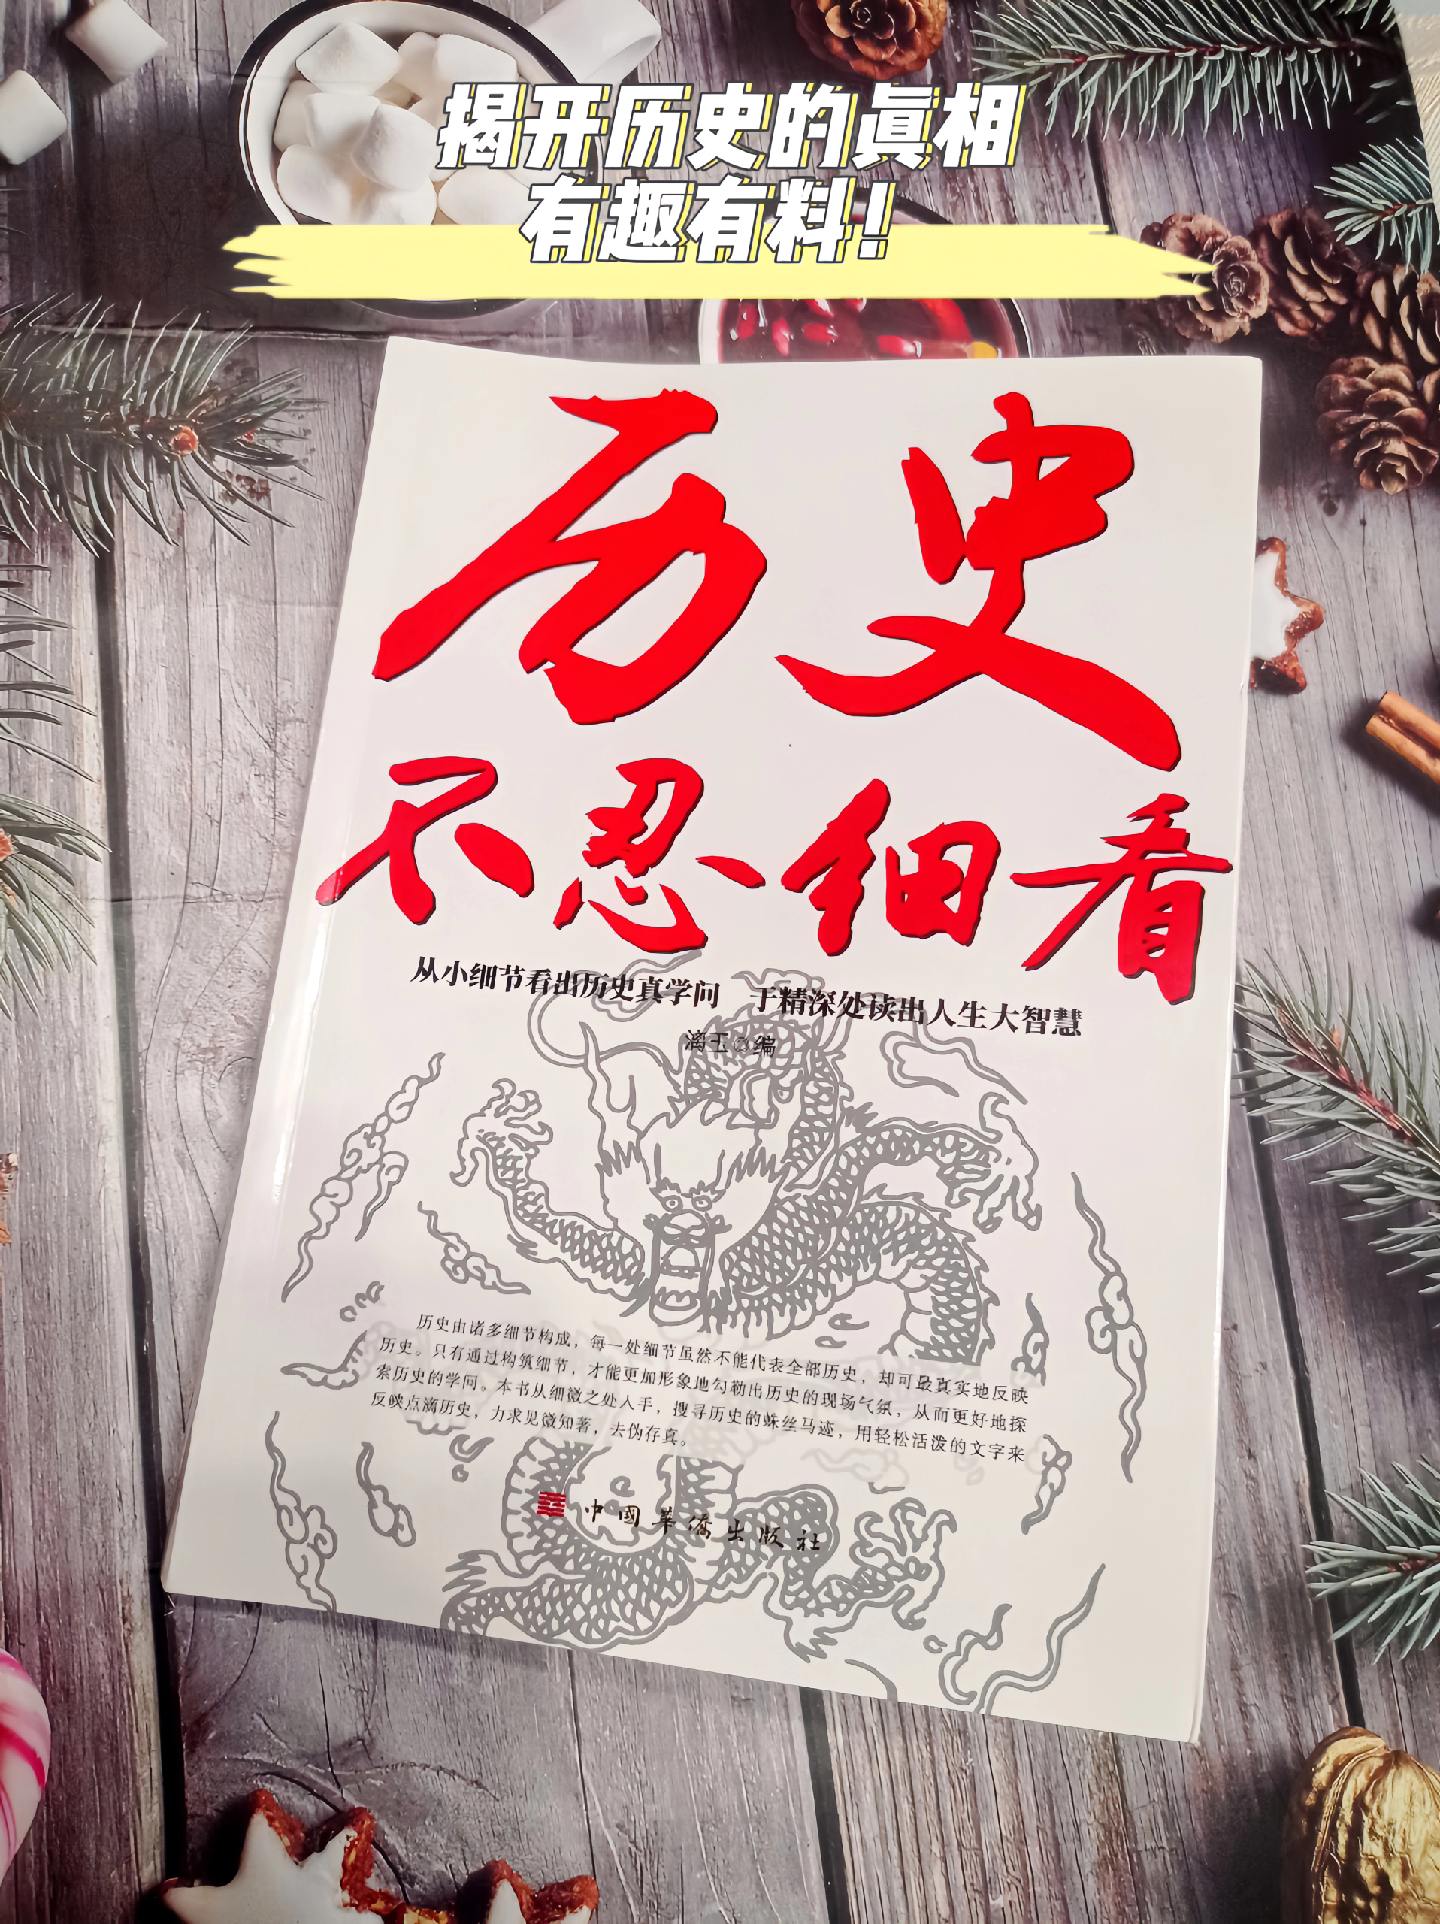 揭开历史的真相
有趣有料！
历史
不忍细看
从小细节看出历史真学问 于精深处读出人生大智慧
漓玉◎编
历史由诸多细节构成，每一处细节虽然不能代表全部历史，却可最真实地反映
历史。只有通过构筑细节，才能更加形象地勾勒出历史的现场气氛，从而更好地探
索历史的学问。本书从细微之处入手，搜寻历史的蛛丝马迹，用轻松活泼的文字来
反映点滴历史，力求见微知著，去伪存真。
中國華僑出版社